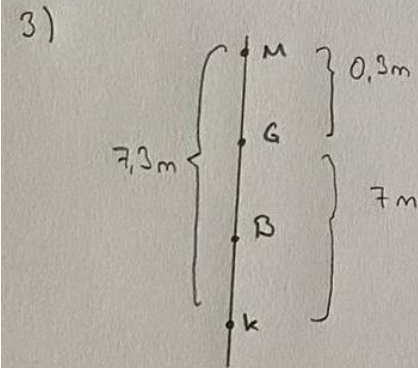 3)
M
0,3m
G
7,3m
7m
B
K